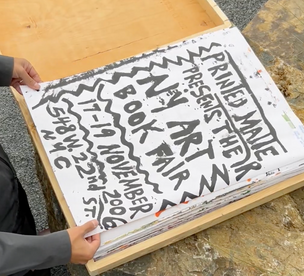 PRINTED MATTER
PRESENTS THE NY
NY ART
BOOK FAIR
17-19 NOVEMBER
2006
548 W. 22nd ST.
NYC